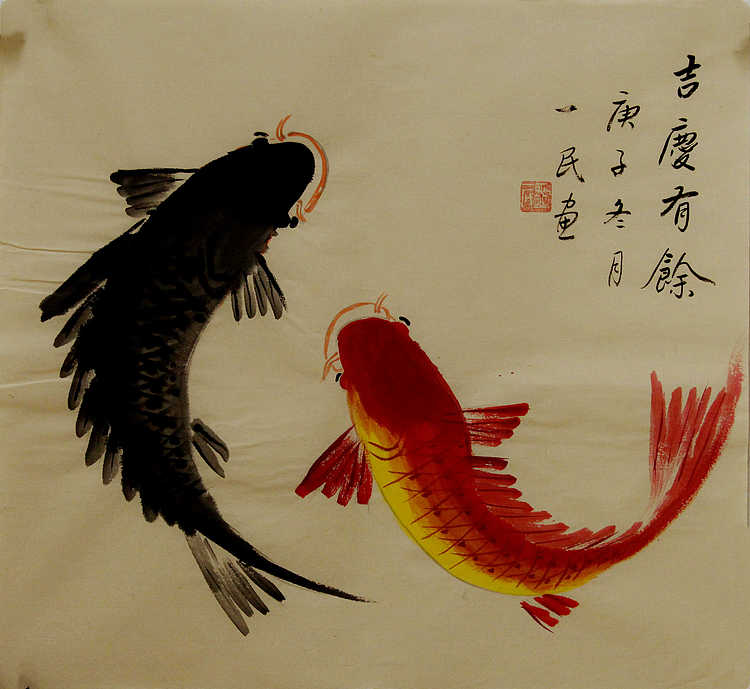 吉慶有餘
庚子冬月
一民画